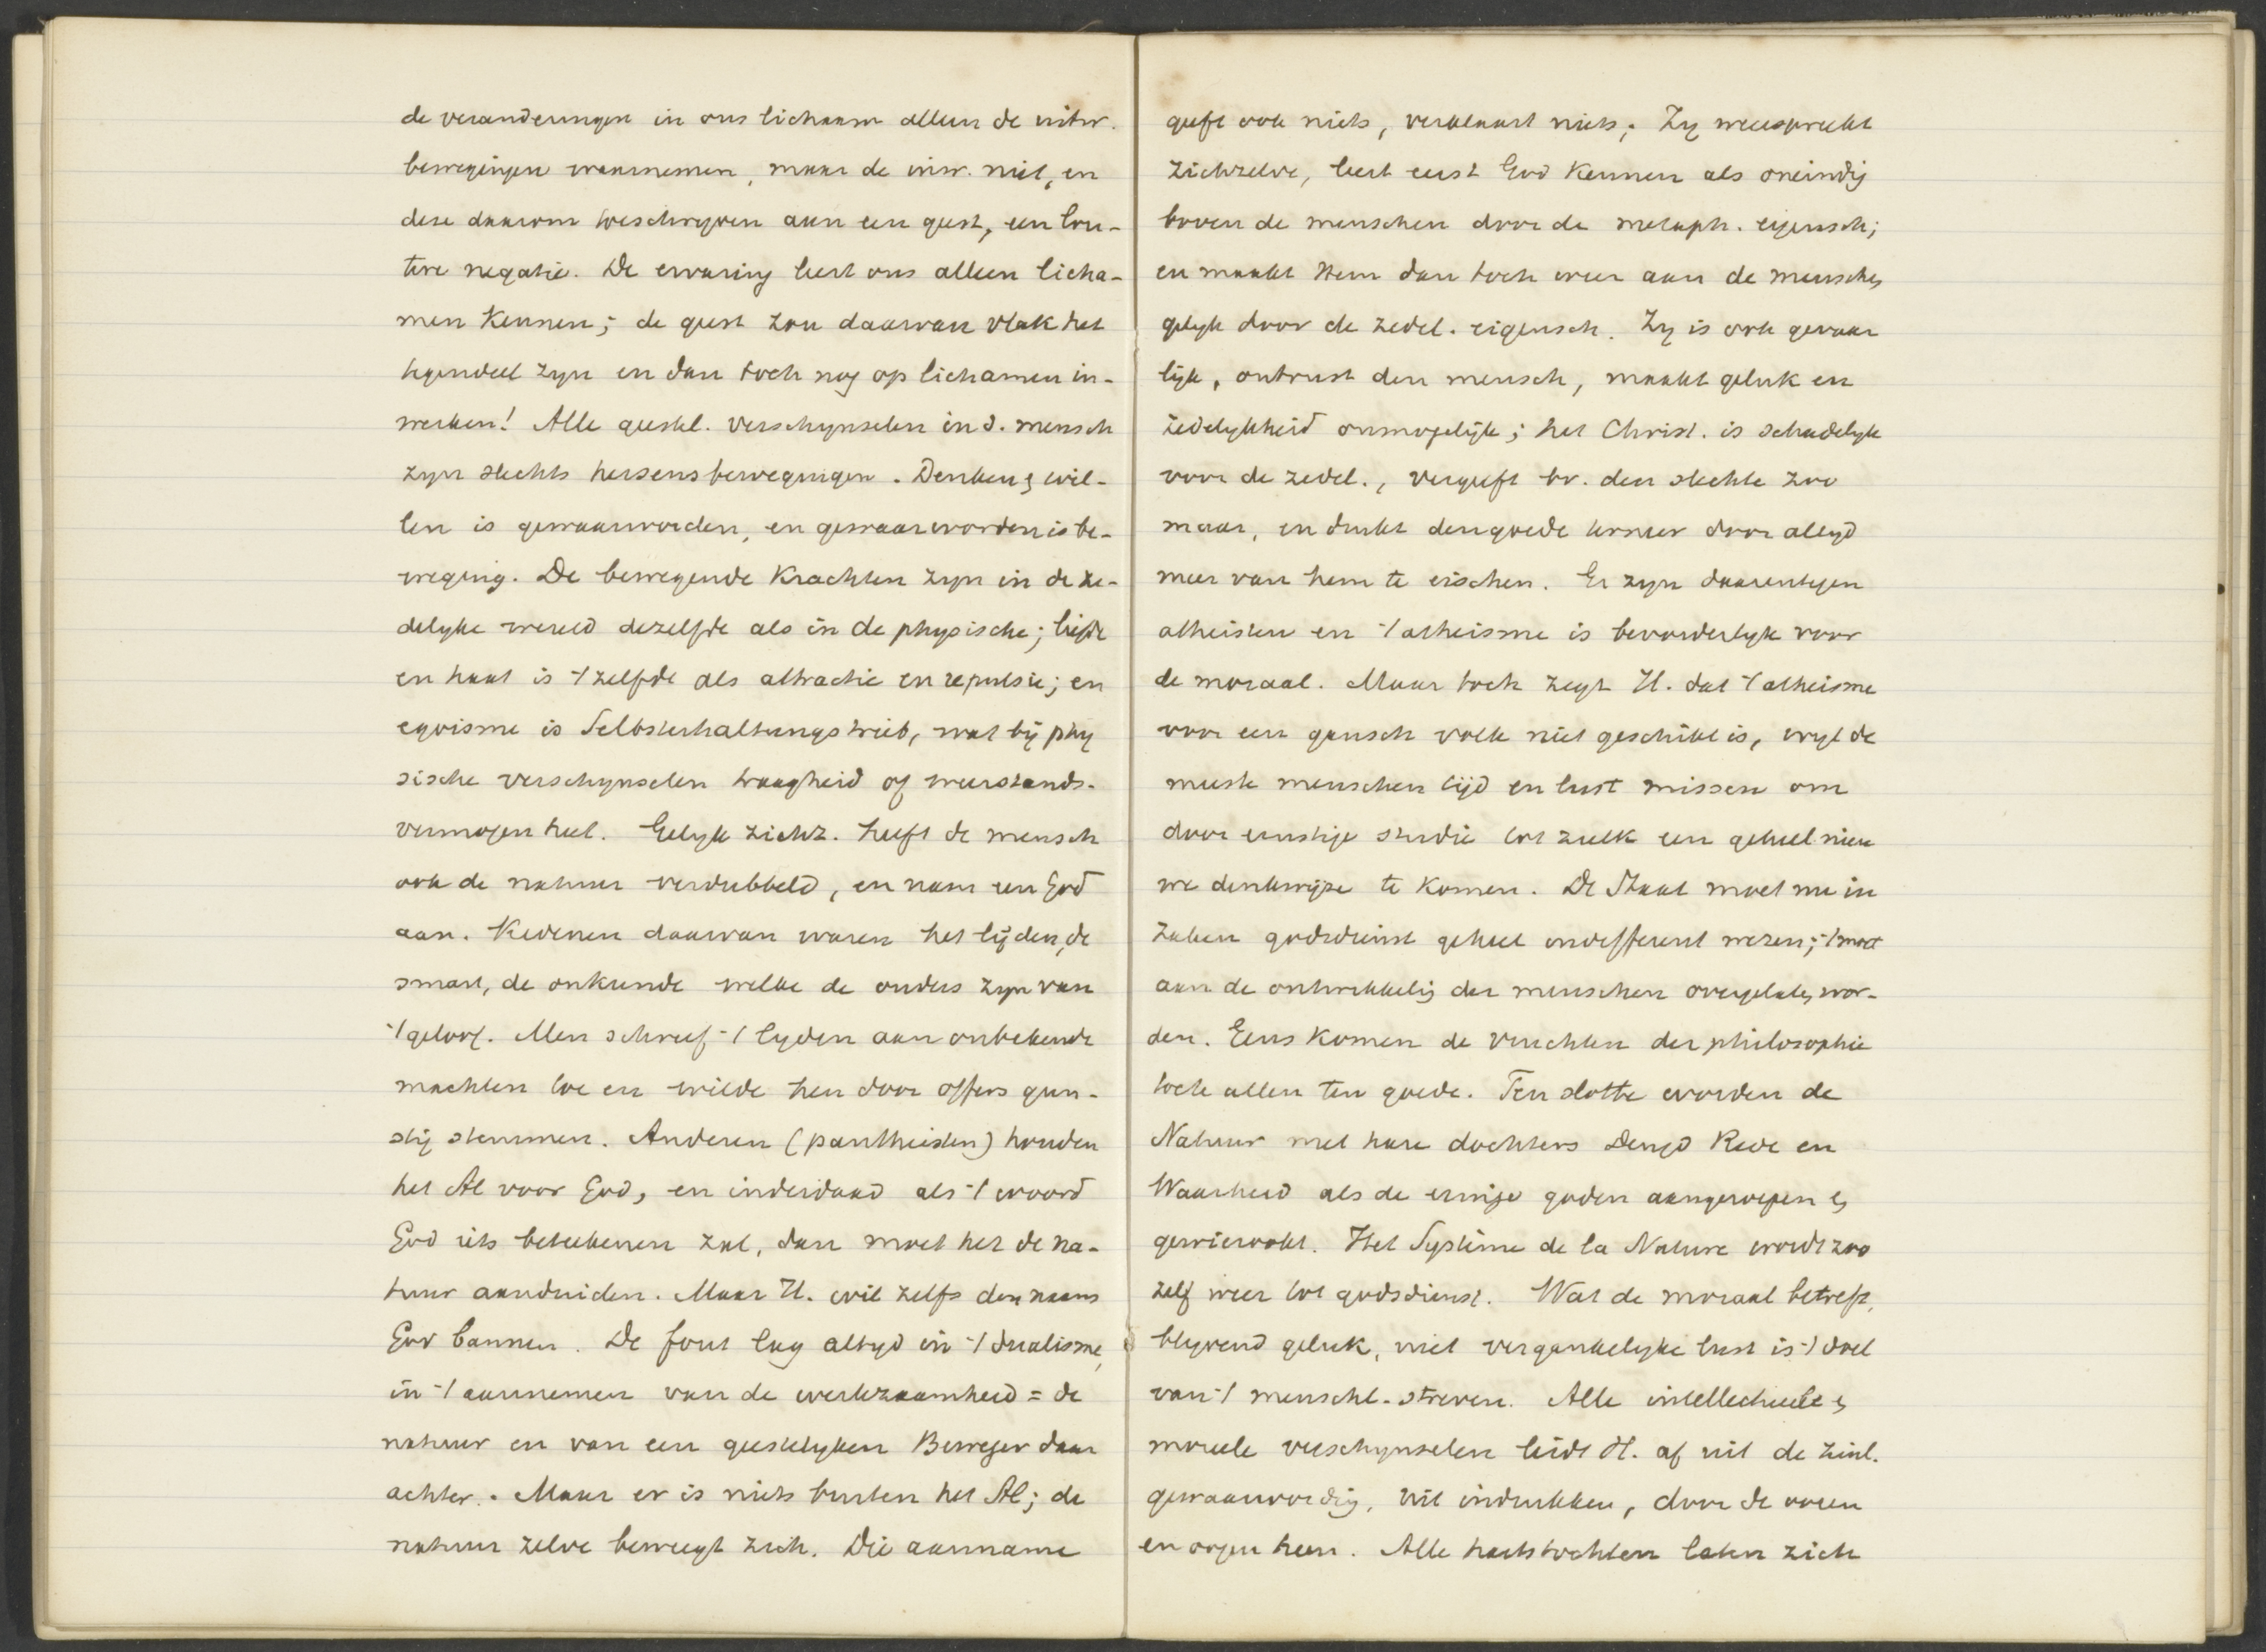 de veranderingen in ons lichaam alleen de uitw.
bewegingen waarnemen, maar de inw. niet, en
deze daarom toeschryven aan een geest, een lou-
tere negatie. De ervaring leert ons alleen licha-
men kennen; de geest zou daarvan vlak het
tegendeel zyn en dan toch nog op lichamen in-
werken! Alle geestel. verschynselen in d. mensch
zyn slechts hersensbewegingen. Denken & wil-
len is gewaarworden, en gewaarworden is be-
weging. De bewegende krachten zyn in de ze-
delyke wereld dezelfde als in de physische; liefde
en haat is 't zelfde als attractie en repulsie; en
egoisme is Selbsterhaltungstrieb, wat bij phy
sische verschynselen traagheid of weerstands-
vermogen heet. Gelyk zichz. heeft de mensch
ook de natuur verdubbeld, en nam een God
aan. Redenen daarvan waren het lijden, de
smart, de onkunde welke de ouders zyn van
't geloof. Men schreef 't lyden aan onbekende
machten toe en wilde hen door offers gun-
stig stemmen. Anderen (pantheisten) houden
het Al voor God, en inderdaad als 't woord
God iets beteekenen zal, dan moet het de na-
tuur aanduiden. Maar H. wil zelfs den naam
God bannen. De fout lag altyd in 't dualisme,
in 't aannemen van de werkzaamheid = de
natuur en van een geestelyken Beweger daar
achter. Maar er is niets buiten het Al; de
natuur zelve beweegt zich. Die aanname
geeft ook niets, verklaart niets; Zy weerspreekt
zichzelve, leert eerst God kennen als oneindig
boven de menschen door de metaph. eigensch;
en maakt Hem dan toch weer aan de menschen
gelyk door de zedel. eigensch. Zy is ook gevaar
lijk, ontrust den mensch, maakt geluk en
zedelykheid onmogelijk; het Christ. is schadelyk
voor de zedel., vergeeft bv. den slechte zoo
maar, en drukt den goede terneer door altyd
meer van hem te eischen. Er zyn daarentegen
atheisten en 't atheisme is bevorderlyk voor
de moraal. Maar toch zegt H. dat 't atheisme
voor een gansch volk niet geschikt is, wyl de
meeste menschen tijd en lust missen om
door ernstige studie tot zulk een geheel nieu
we denkwijze te komen. De Staat moet nu in
zaken godsdienst geheel indifferent wezen; 't moet
aan de ontwikkelig der menschen overgelaten wor-
den. Eens komen de vruchten der philosophie
toch allen ten goede. Ten slotte worden de
Natuur met hare dochters Deugd Rede en
Waarheid als de eenige goden aangeroepen &
gewierookt. Het Système de la Nature wordt zoo
zelf weer tot godsdienst. Wat de moraal betreft,
blyvend geluk, niet vergankelyke lust is 't doel
van 't menschl. streven. Alle intellectueele &
moreele verschynselen leidt H. af uit de zinl.
gewaarwordig, uit indrukken, door de ooren
en oogen heen. Alle hartstochten laten zich